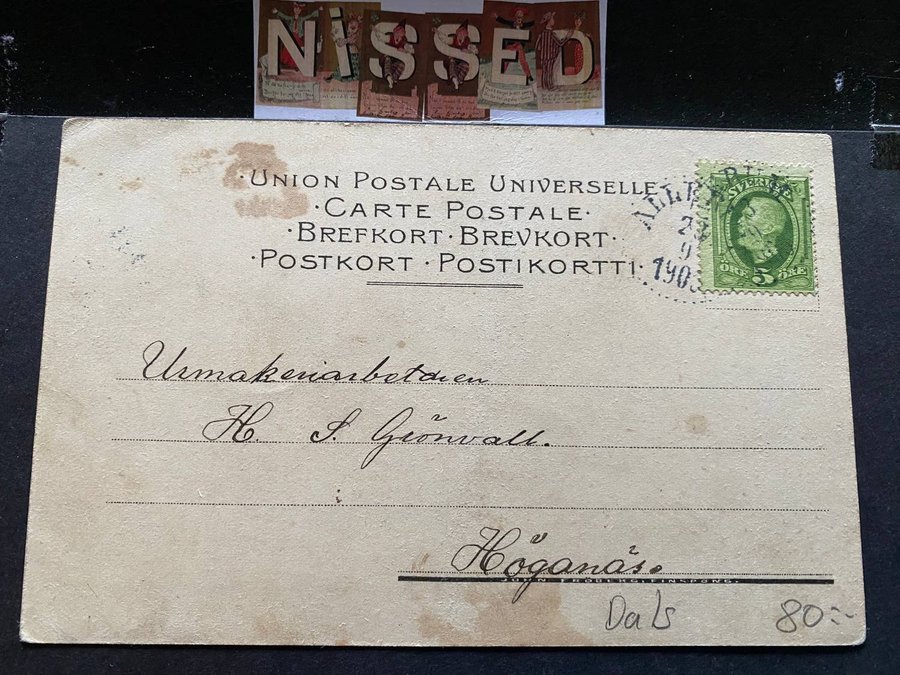 NISSED
·UNION POSTALE UNIVERSELLE
·CARTE POSTALE·
·BREFKORT·BREVKORT·
·POSTKORT·POSTIKORTTI·
SVERIGE
5
ÖRE ÖRE
9
Urmakeriarbetaren
H. S. Grönvall.
Höganäs.
JOHN FROBERG, FINSPONG.
Dals
80:-